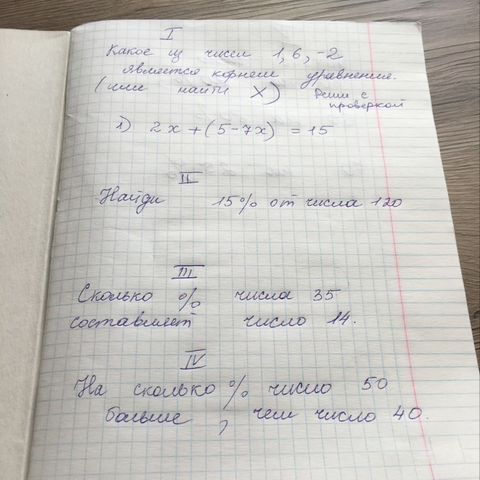 I
Какое из чисел 1, 6, -2
является корнем уравнение.
(или найти X) Реши с
проверкой
1) 2x + (5-7x) = 15
II
Найди 15% от числа 120
III
Сколько % числа 35
составляет число 14.
IV
На сколько % число 50
больше , чем число 40.